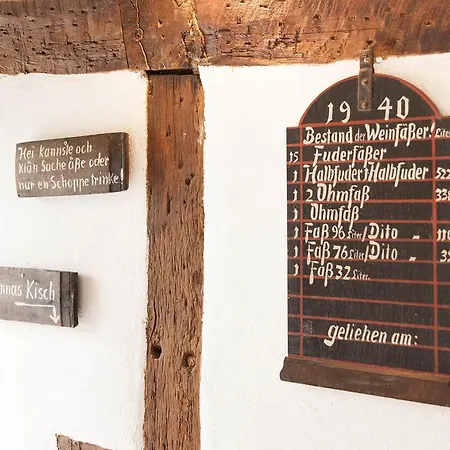 Hei kannste och
Klän Sache äße oder
nur en Schoppe trinke!
Kisch
1940
Bestand der Weinfäßer! Liter
15 Fuderfäßer
1 Halbfuder/Halbfuder 522
1 2 Ohmfaß 338
1 Ohmfaß
1 Faß 96 Liter/Dito „ 110
1 Faß 76 Liter/Dito „ 39
1 Faß 32 Liter.
geliehen am: